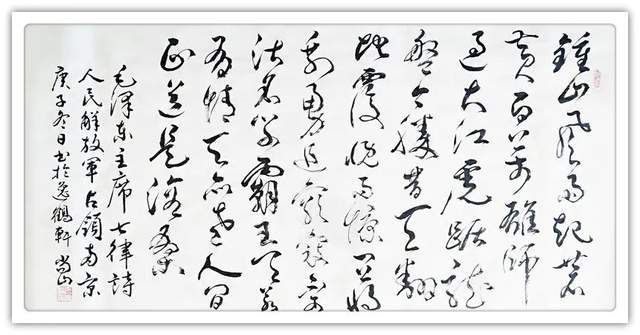 鍾山风雨起苍
黄百万雄师
过大江虎踞龙
盤今胜昔天翻
地覆慨而慷宜将
剩勇追窮寇不可
沽名学霸王天若
有情天亦老人间
正道是滄桑
毛澤东主席七律詩
人民解放軍占領南京
庚子冬日书於逸鶴軒